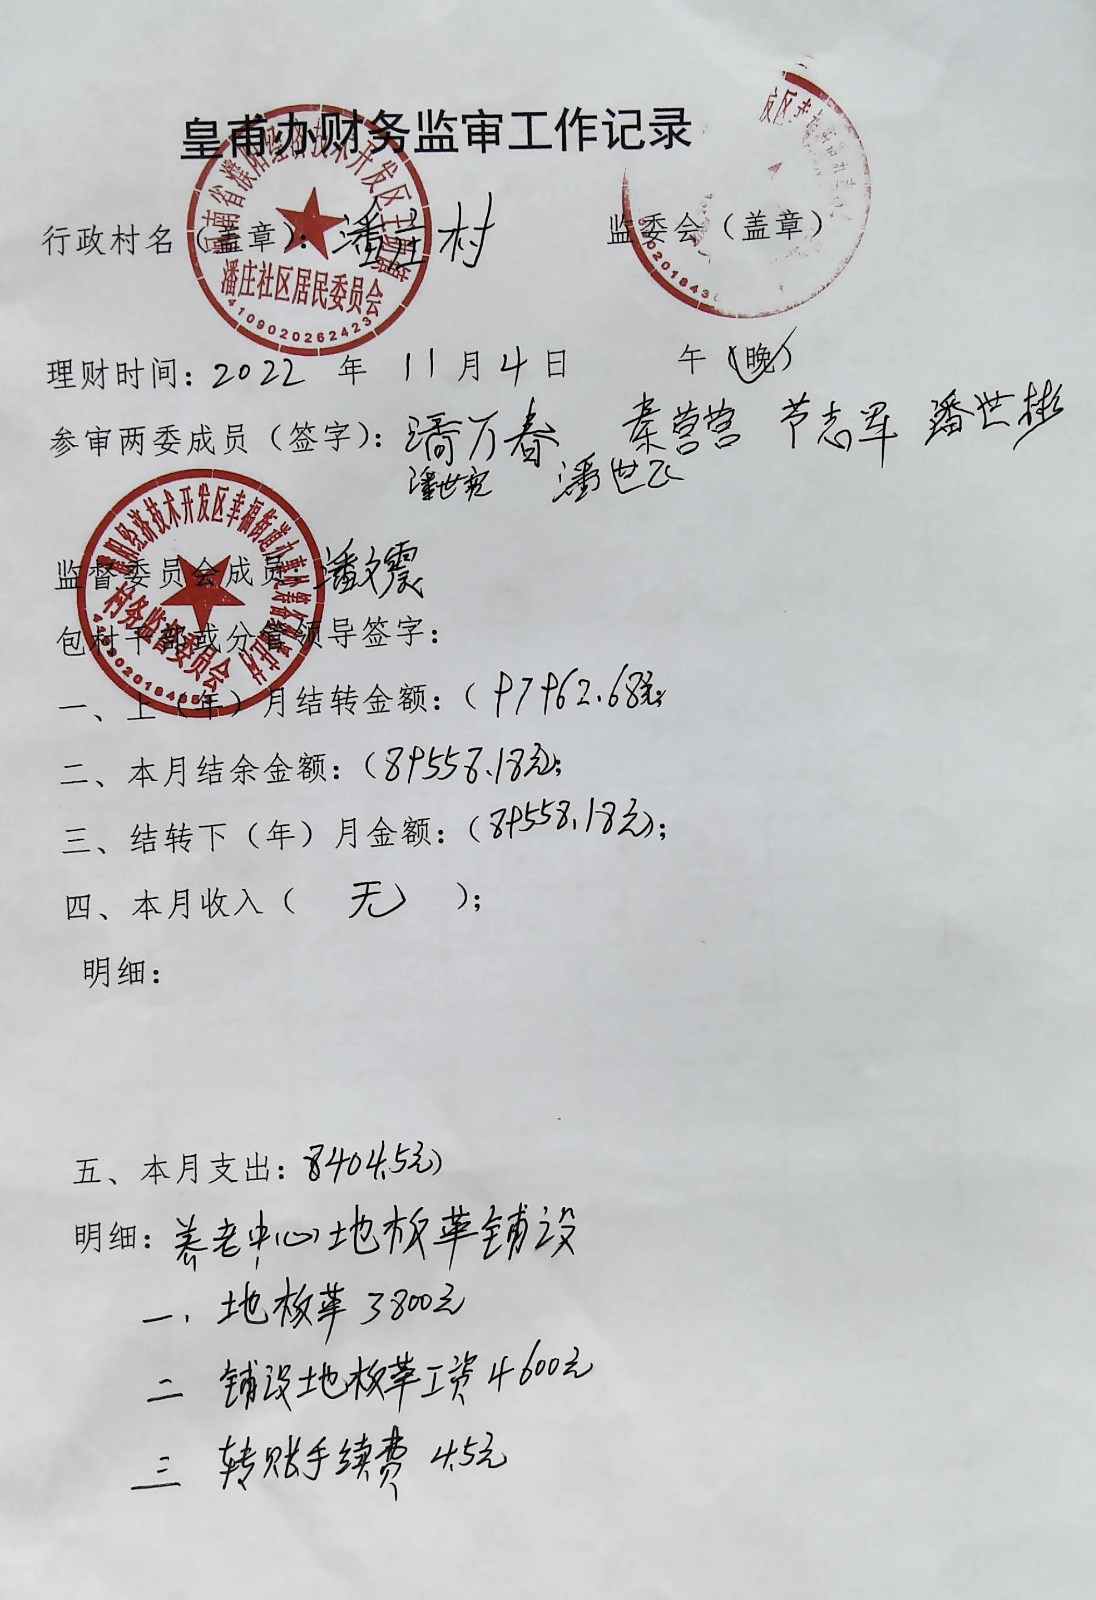 皇甫办财务监审工作记录
行政村名（盖章）：潘庄村 监委会（盖章）
潘庄社区居民委员会
4109020262423
理财时间：2022 年 11月4日 午（晚）
参审两委成员（签字）：潘万春 秦营营 节志军 潘世彬
潘世宽 潘世飞
监督委员会成员：潘文震
包村干部或分管领导签字：
村务监督委员会
一、上（年）月结转金额：（97962.68元；
二、本月结余金额：（89558.18元）；
三、结转下（年）月金额：（89558.18元）；
四、本月收入（ 无 ）；
明细：
五、本月支出：8404.5元）
明细：养老中心地板革铺设
一、地板革3800元
二 铺设地板革工资4600元
三 转账手续费 4.5元